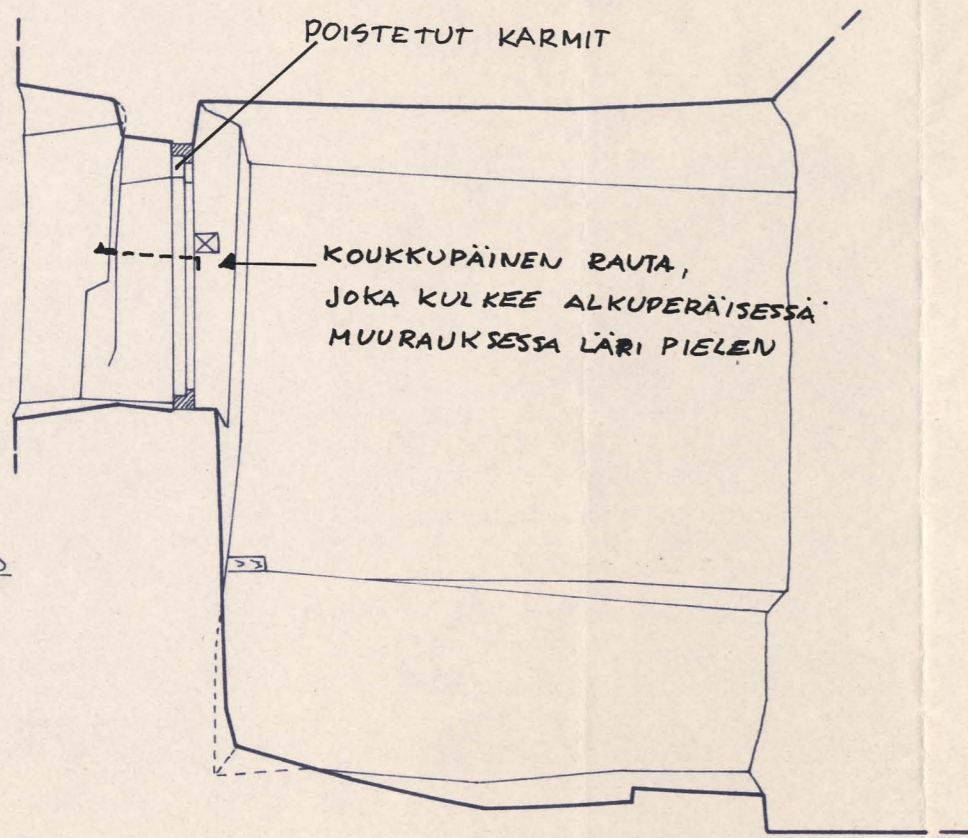 POISTETUT KARMIT
KOUKKUPÄINEN RAUTA,
JOKA KULKEE ALKUPERÄISESSÄ
MUURAUKSESSA LÄRI PIELEN